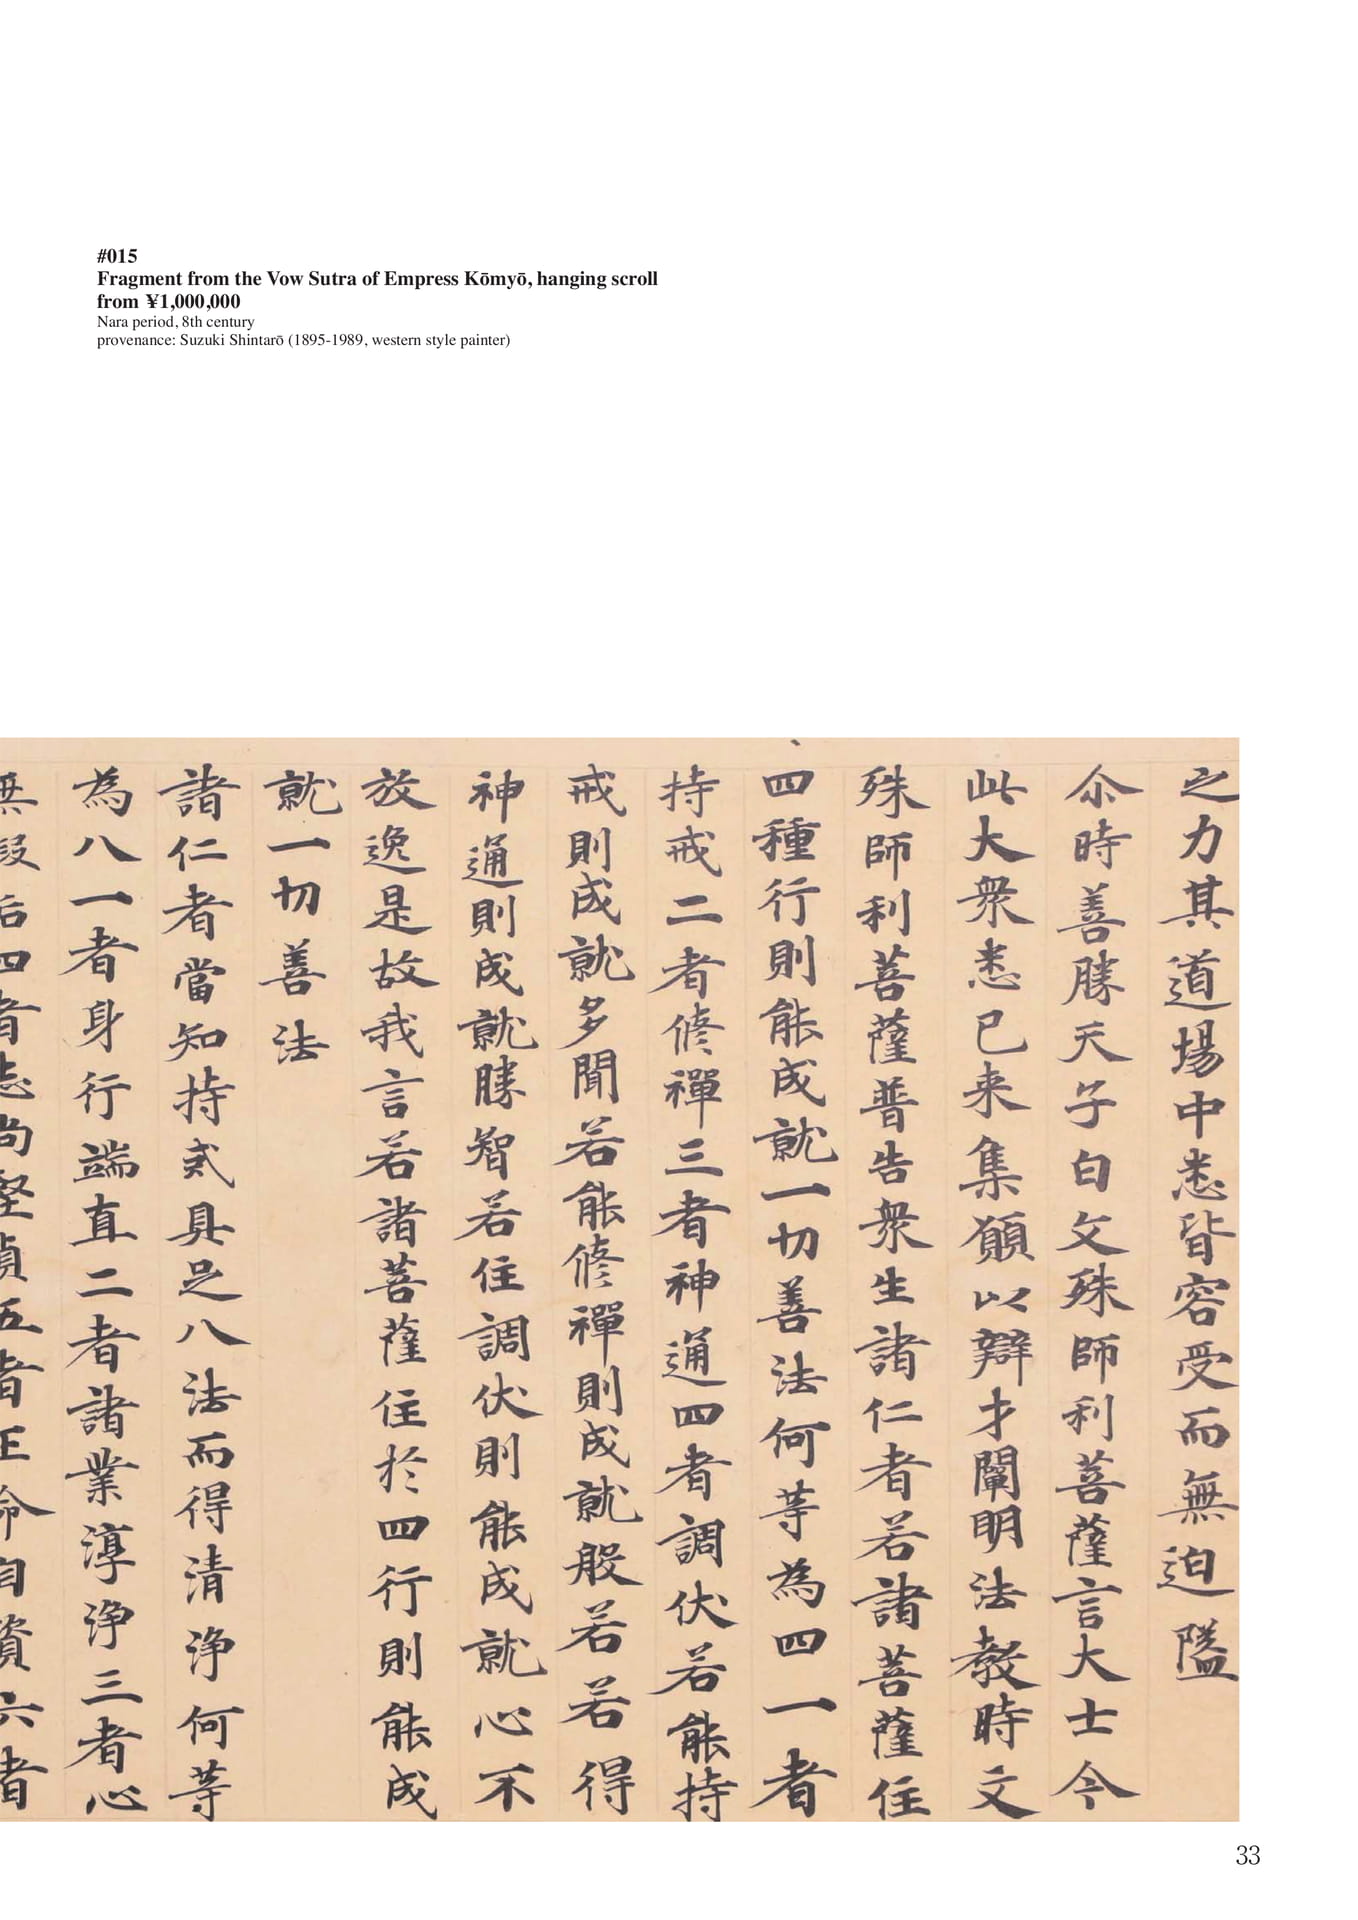 #015
Fragment from the Vow Sutra of Empress Kōmyō, hanging scroll
from ¥1,000,000
Nara period, 8th century
provenance: Suzuki Shintarō (1895-1989, western style painter)
之力其道場中悉皆容受而無迫隘
尒時善勝天子白文殊師利菩薩言大士今
此大衆悉已来集願以辯才闡明法教時文
殊師利菩薩普告衆生諸仁者若諸菩薩住
四種行則能成就一切善法何等為四一者
持戒二者脩禪三者神通四者調伏若能持
戒則成就多聞若能脩禪則成就般若若得
神通則成就勝智若住調伏則能成就心不
放逸是故我言若諸菩薩住於四行則能成
就一切善法
諸仁者當知持戒具足八法而得清浄何等
為八一者身行端直二者諸業淳浄三者心
無 垢四者志尚堅貞五者正命自資六者
33